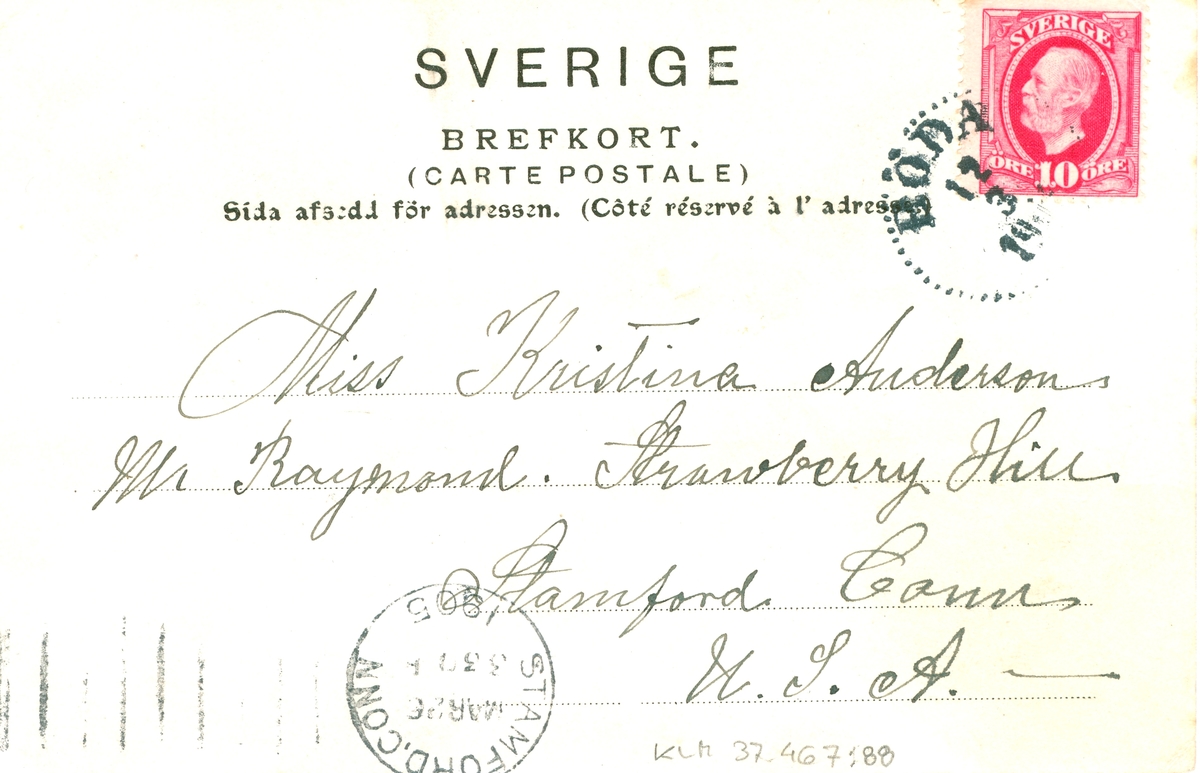 SVERIGE
BREFKORT.
(CARTE POSTALE)
Sida afsedd för adressen. (Côté réservé à l' adresse)
SVERIGE
ÖRE 10 ÖRE
BÖDA
12
3
19
Miss Kristina Anderson
Mr Raymond. Strawberry Hill
Stamford Conn
U. S. A. —
STAMFORD, CONN
MAR 26
330
905
KLM 37.467:88